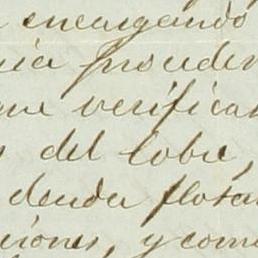 encargando
ia proceder
que verificar
del cobre,
deuda flota
ciones, y como